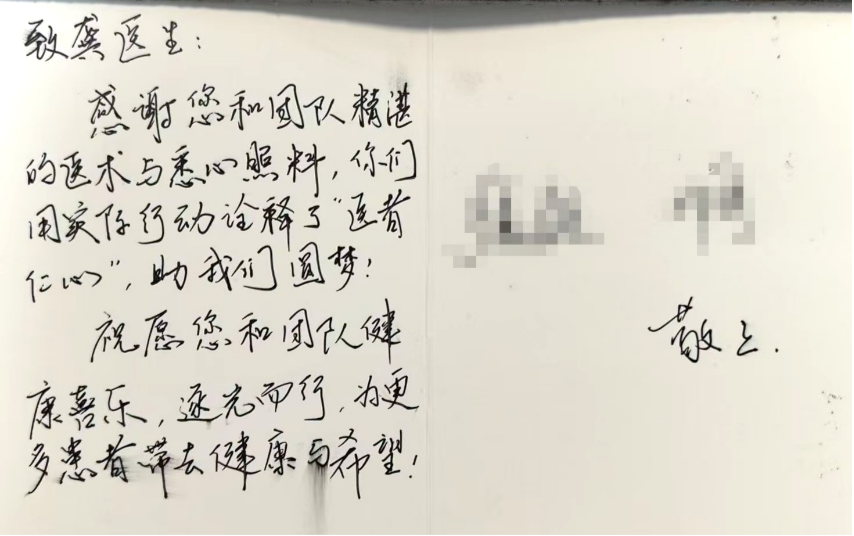 致龚医生：
感谢您和团队精湛
的医术与悉心照料，你们
用实际行动诠释了“医者
仁心”，助我们圆梦！
祝愿您和团队健
康喜乐，逐光而行，为更
多患者带去健康与希望！
敬上.